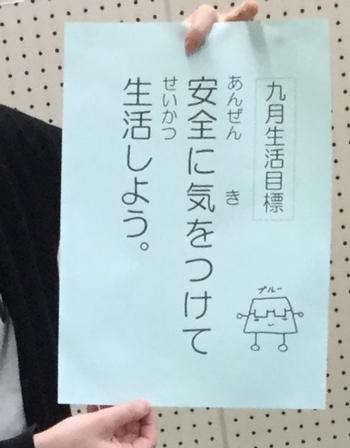 九月生活目標
あんぜん き
安全に気をつけて
せいかつ
生活しよう。
ブルー